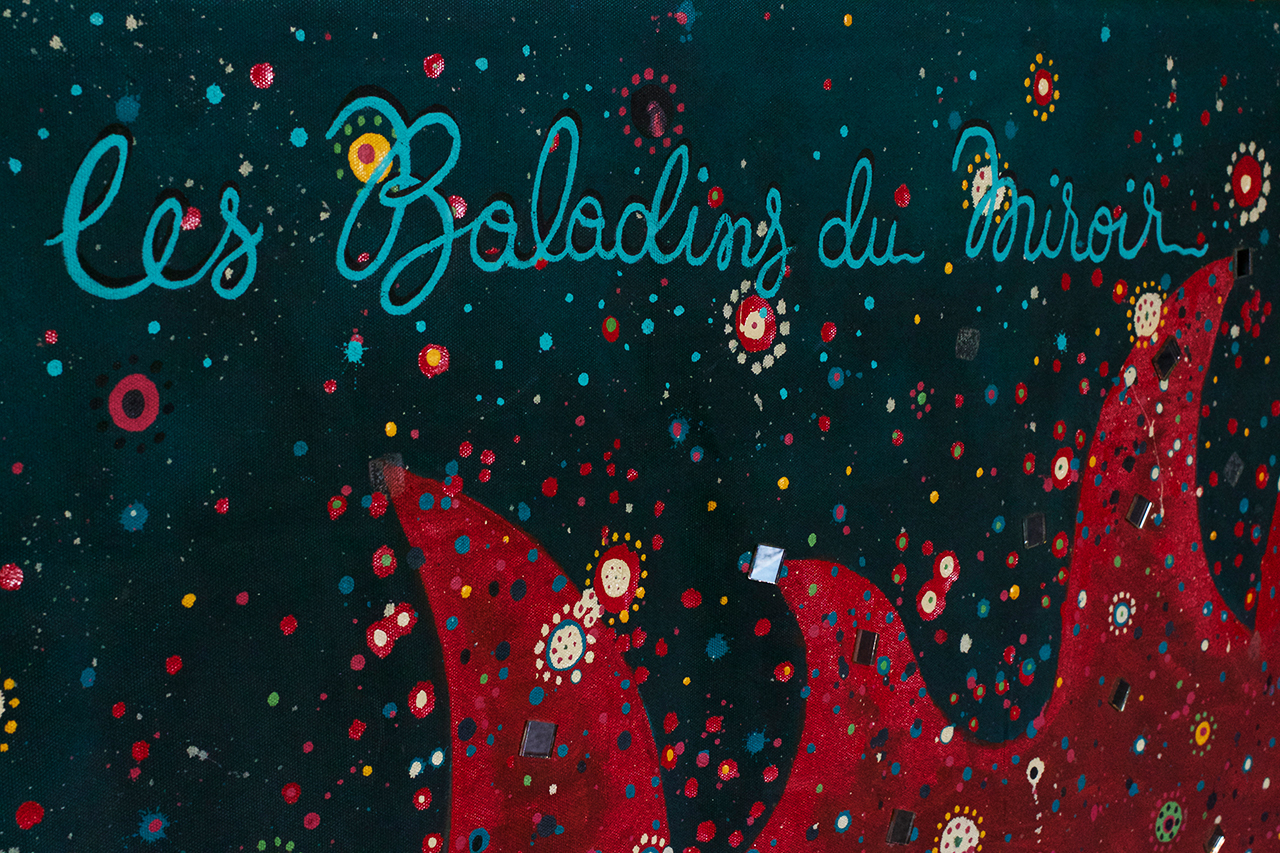 les Baladins du Miroir